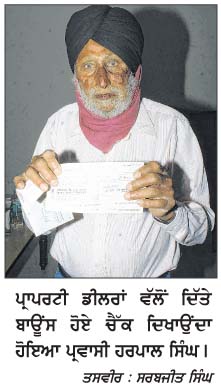 ਪ੍ਰਾਪਰਟੀ ਡੀਲਰਾਂ ਵੱਲੋਂ ਦਿੱਤੇ
ਬਾਊਂਸ ਹੋਏ ਚੈੱਕ ਦਿਖਾਉਂਦਾ
ਹੋਇਆ ਪ੍ਰਵਾਸੀ ਹਰਪਾਲ ਸਿੰਘ।
ਤਸਵੀਰ : ਸਰਬਜੀਤ ਸਿੰਘ